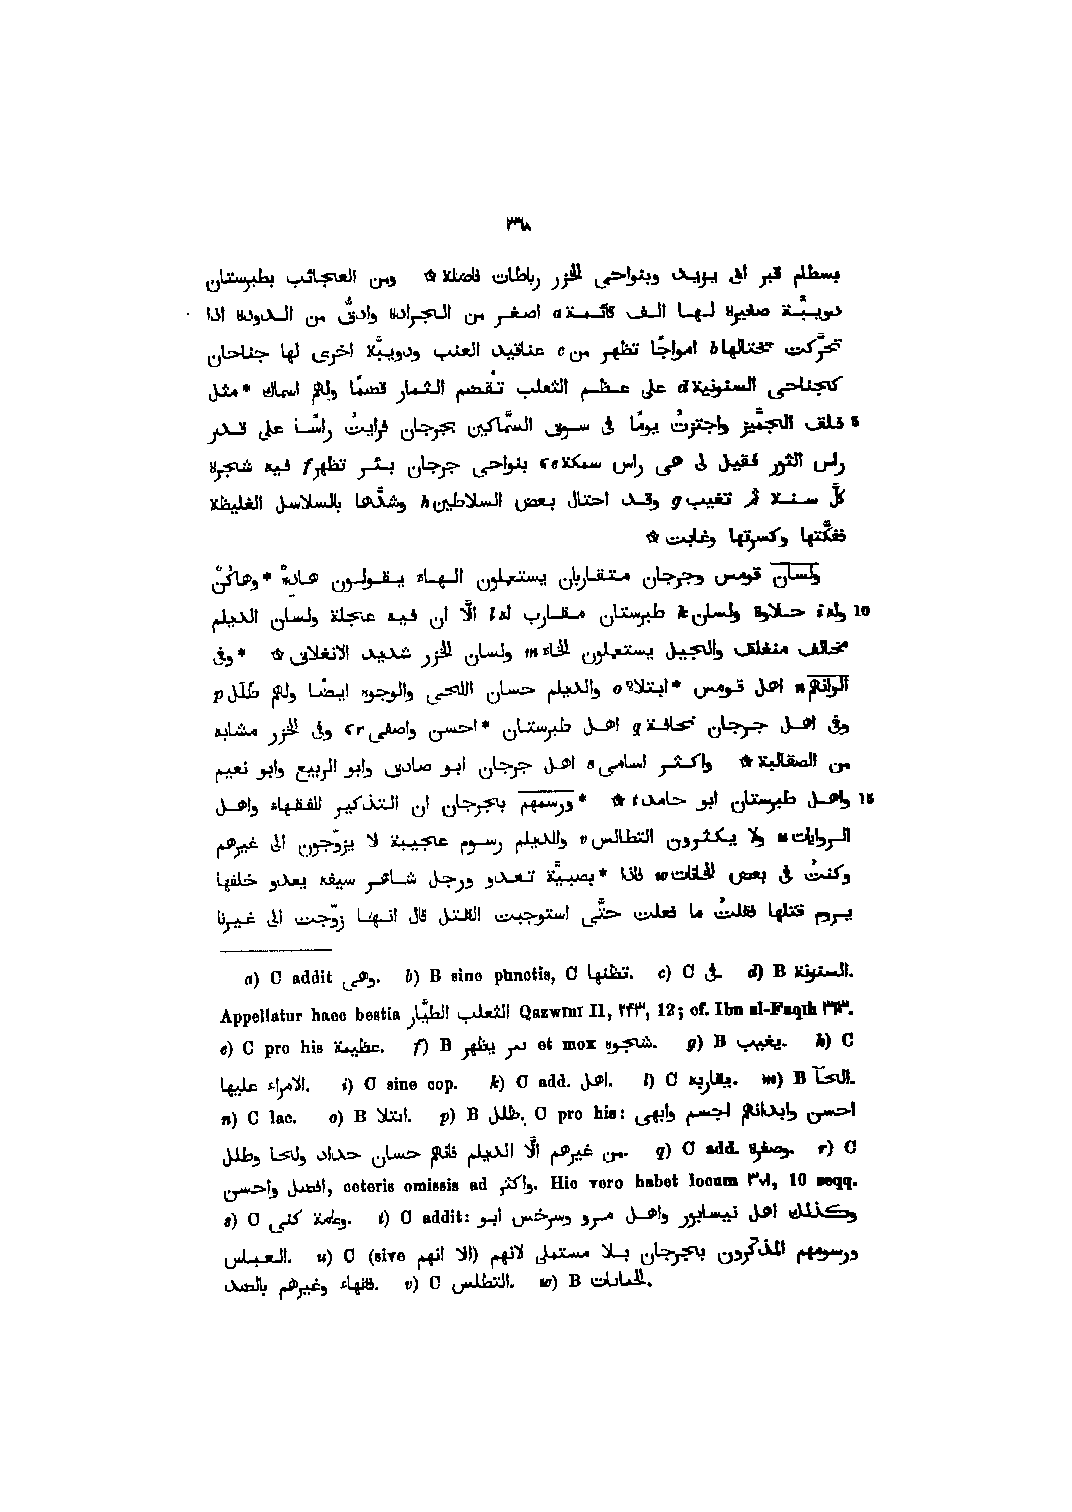 ٣٦٨
بسطام قبر ابى يزيد وبنواحى الخزر رباطات فاضلة ☆ ومن العجائب بطبرستان
دويبّة صغيرة لها الف قائمة a اصغر من الجرادة وادقّ من الدودة اذا
تحرّكت تختالها b امواجًا تظهر من c عناقيد العنب ودويبّة اخرى لها جناحان
كجناحى السنونية d على عظم الثعلب تقضم الثمار قضمًا ولهم اسماك *مثل
5 فلق الجمّيز واجتزتُ يومًا فى سوق السمّاكين بجرجان فرايتُ راسًا على قدر
راس الثور فقيل لى هى راس سمكة e بنواحى جرجان بئر تظهر f فيه شجرة
كلّ سنة ثم تغيب g وقد احتال بعض السلاطين h وشدّها بالسلاسل الغليظة
ففكّتها وكسرتها وغابت ☆
ولسان قومس وجرجان متقاربان يستعملون الهاء يقولون هاده *وهاكن
10 وله i حلاوة ولسان k طبرستان مقارب له l الّا ان فيه عجلة ولسان الديلم
مخالف منغلق والجيل يستعملون الخاء m ولسان الخزر شديد الانغلاق ☆ *وفى
الوانهم n اهل قومس *ابتلاء o والديلم حسان اللحى والوجوه ايضا ولهم طلل p
وفى اهل جرجان نحافة q اهل طبرستان *احسن واصفى r وفى الخزر مشابه
من الصقالبة ☆ واكثر اسامى s اهل جرجان ابو صادق وابو الربيع وابو نعيم
15 واهل طبرستان ابو حامد t ☆ *ورسمهم بجرجان ان التذكير للفقهاء واهل
الروايات u ولا يكثرون التطالس v وللديلم رسوم عجيبة لا يزوّجون الى غيرهم
وكنتُ فى بعض الخانات w فاذا *بصبيّة تعدو ورجل شاهر سيفه يعدو خلفها
يروم قتلها فقلتُ ما فعلت حتّى استوجبت القتل قال انها زوّجت الى غيرنا
a) C addit وهى. b) B sine punctis, C تظنها. c) C فى. d) B السنونة.
Appellatur haec bestia الثعلب الطيّار Qazwīnī II, ٢٤٣, 12; cf. Ibn al-Faqīh ٣٦٣.
e) C pro his عظيمة. f) B بئر يظهر et mox شجوه. g) B يغيب. h) C
الامراء عليها. i) C sine cop. k) C add. اهل. l) C يقاربه. m) B الحآ.
n) C lac. o) B ابتلا. p) B ظلل. C pro his: احسن وابدانهم اجسم وابهى
من غيرهم الّا الديلم فانهم حسان حداد ولحا وطلل. q) C add. وصفرة. r) C
افضل واحسن, ceteris omissis ad واكثر. Hic vero habet locum ٣٥٩, 10 seqq.
s) C وعامة كنى. t) C addit: وكذلك اهل نيسابور واهل مرو وسرخس ابو
العباس. u) C (sive الا انهم) ورسومهم المذكّرون بجرجان بلا مستملى لانهم
فقهاء وغيرهم بالضد. v) C التطلس. w) B الخانات.